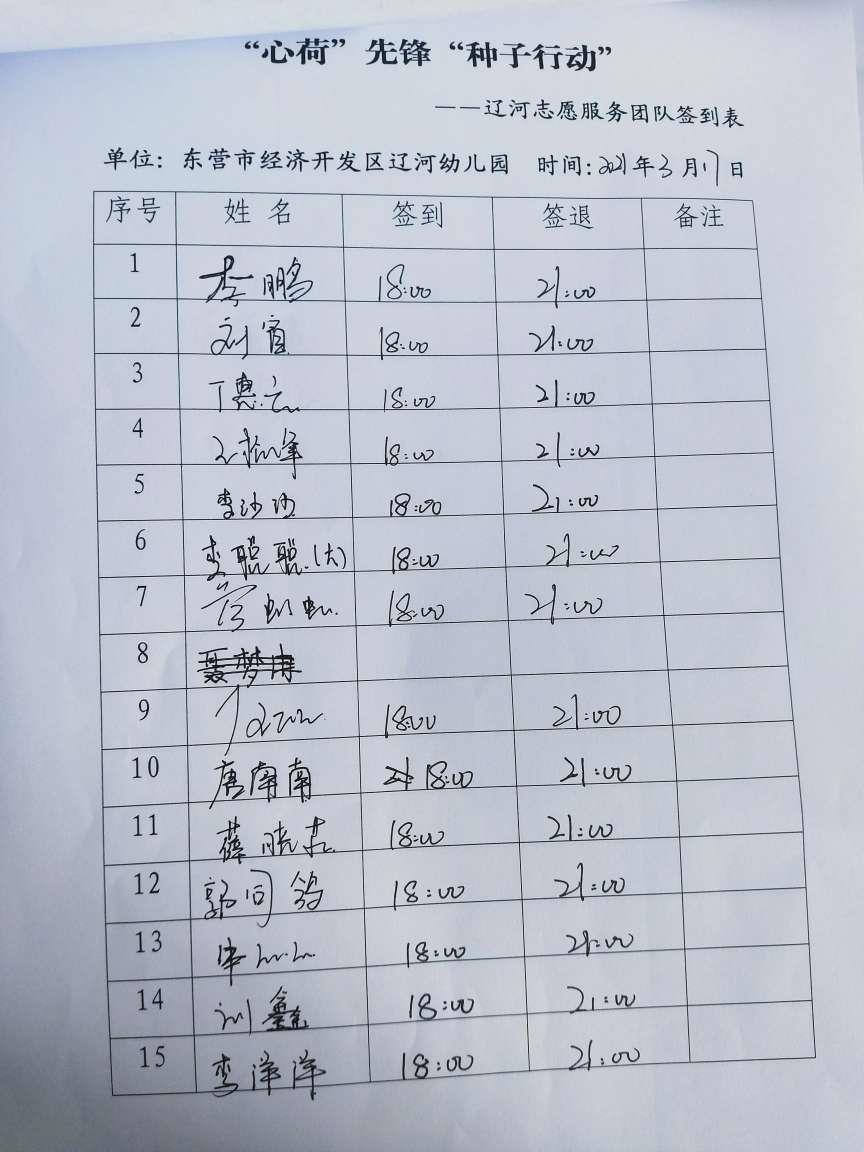 “心荷”先锋“种子行动”
——辽河志愿服务团队签到表
单位：东营市经济开发区辽河幼儿园 时间：2021年3月17日
序号 姓名 签到 签退 备注
1 李鹏 18:00 21:00
2 刘宵 18:00 21:00
3 丁惠云 18:00 21:00
4 18:00 21:00
5 李沙沙 18:00 21:00
6 李聪聪(大) 18:00 21:00
7 18:00 21:00
8
9 18:00 21:00
10 唐南南 18:00 21:00
11 薛晓 18:00 21:00
12 郭同鸽 18:00 21:00
13 18:00 21:00
14 刘鑫 18:00 21:00
15 李洋洋 18:00 21:00